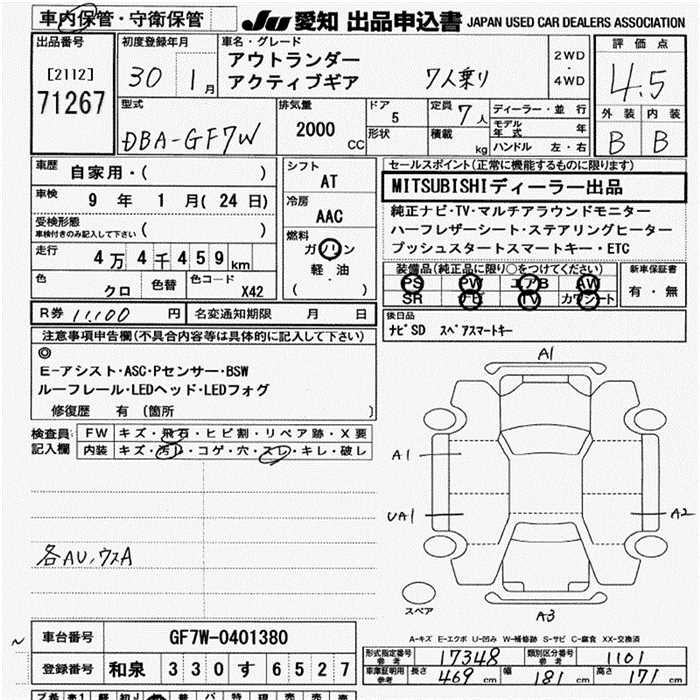 車内保管・守衛保管
JU 愛知 出品申込書 JAPAN USED CAR DEALERS ASSOCIATION
出品番号
[2112]
71267
初度登録年月
30 1月
車名・グレード
アウトランダー
アクティブギア 7人乗り
2WD
・
4WD
評価点
4.5
外装 内装
B B
型式
DBA-GF7W
排気量
2000 CC
ドア
5
形状
定員 7人
積載 kg
ディーラー・並行
モデル年式 年
ハンドル 左・右
車歴 自家用・( )
車検 9年 1月(24日)
受検形態
車検付きのみ記入して下さい ( )
走行 4万4千459km
色 クロ 色替 色コード X42
シフト
AT
冷房
AAC
燃料
ガソリン
軽油
( )
セールスポイント(正常に機能するものに限ります)
MITSUBISHIディーラー出品
純正ナビ・TV・マルチアラウンドモニター
ハーフレザーシート・ステアリングヒーター
プッシュスタートスマートキー・ETC
装備品(純正品に限り○をつけてください)
PS PW エアB AW
SR ナビ TV カワシート
新車保証書
有・無
R券 11,100 円 名変通知期限 月 日
後日品
ナビSD スペアスマートキー
注意事項申告欄(不具合内容等は具体的に記入して下さい)
◎
E-アシスト・ASC・Pセンサー・BSW
ルーフレール・LEDヘッド・LEDフォグ
修復歴 有(箇所 )
検査員記入欄
FW キズ・飛石・ヒビ割・リペア跡・X要
内装 キズ・汚れ・コゲ・穴・スレ・キレ・破レ
各AU、ウスA
A1
A1
UA1
A2
A3
スペア
A-キズ E-エクボ U-凹み W-補修跡 S-サビ C-腐食 XX-交換済
車台番号 GF7W-0401380
登録番号 和泉 330 す 6527
形式指定番号 参考 17348 類別区分番号 参考 1101
車庫証明用 参考 長さ 469 cm 幅 181 cm 高さ 171 cm